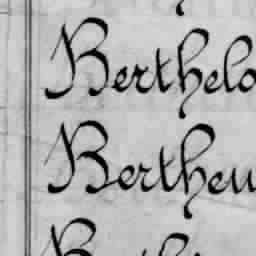 Berthelo
Bertheu